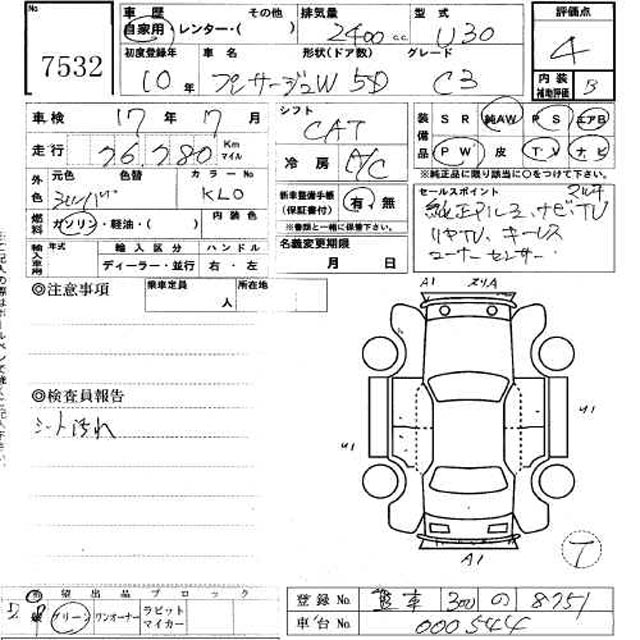 No 7532
車歴 その他 排気量 型式 評価点
自家用・レンター・( ) 2400 c.c. U30 4
初度登録年 車名 形状(ドア数) グレード 内装補助評価
10年 プレサージュW 5D C3 B
車検 17年 7月 シフト 装備品 SR 純AW PS エアB
走行 76,780 Km マイル CAT PW 皮 TV ナビ
冷房 A/C ※純正品に限り該当に○をつけて下さい。
外色 元色 色替 カラーNo 新車整備手帳 セールスポイント
シルバー KL0 (保証書付) 有・無 マルチ
燃料 ガソリン・軽油・( ) 内装色 ※書類と一緒に保管下さい。 純正アルミ、ナビ、TV
輸入車用 年式 輸入区分 ハンドル 名義変更期限 リヤTV、キーレス
ディーラー・並行 右・左 月 日 コーナーセンサー
◎注意事項 乗車定員 人 所在地
A1
◎検査員報告
シート汚れ
U1
U1
7
A1
希望出品ブロック
グリーン ワンオーナー ラビットマイカー
登録No. 300 の 8751
車台No. 000544